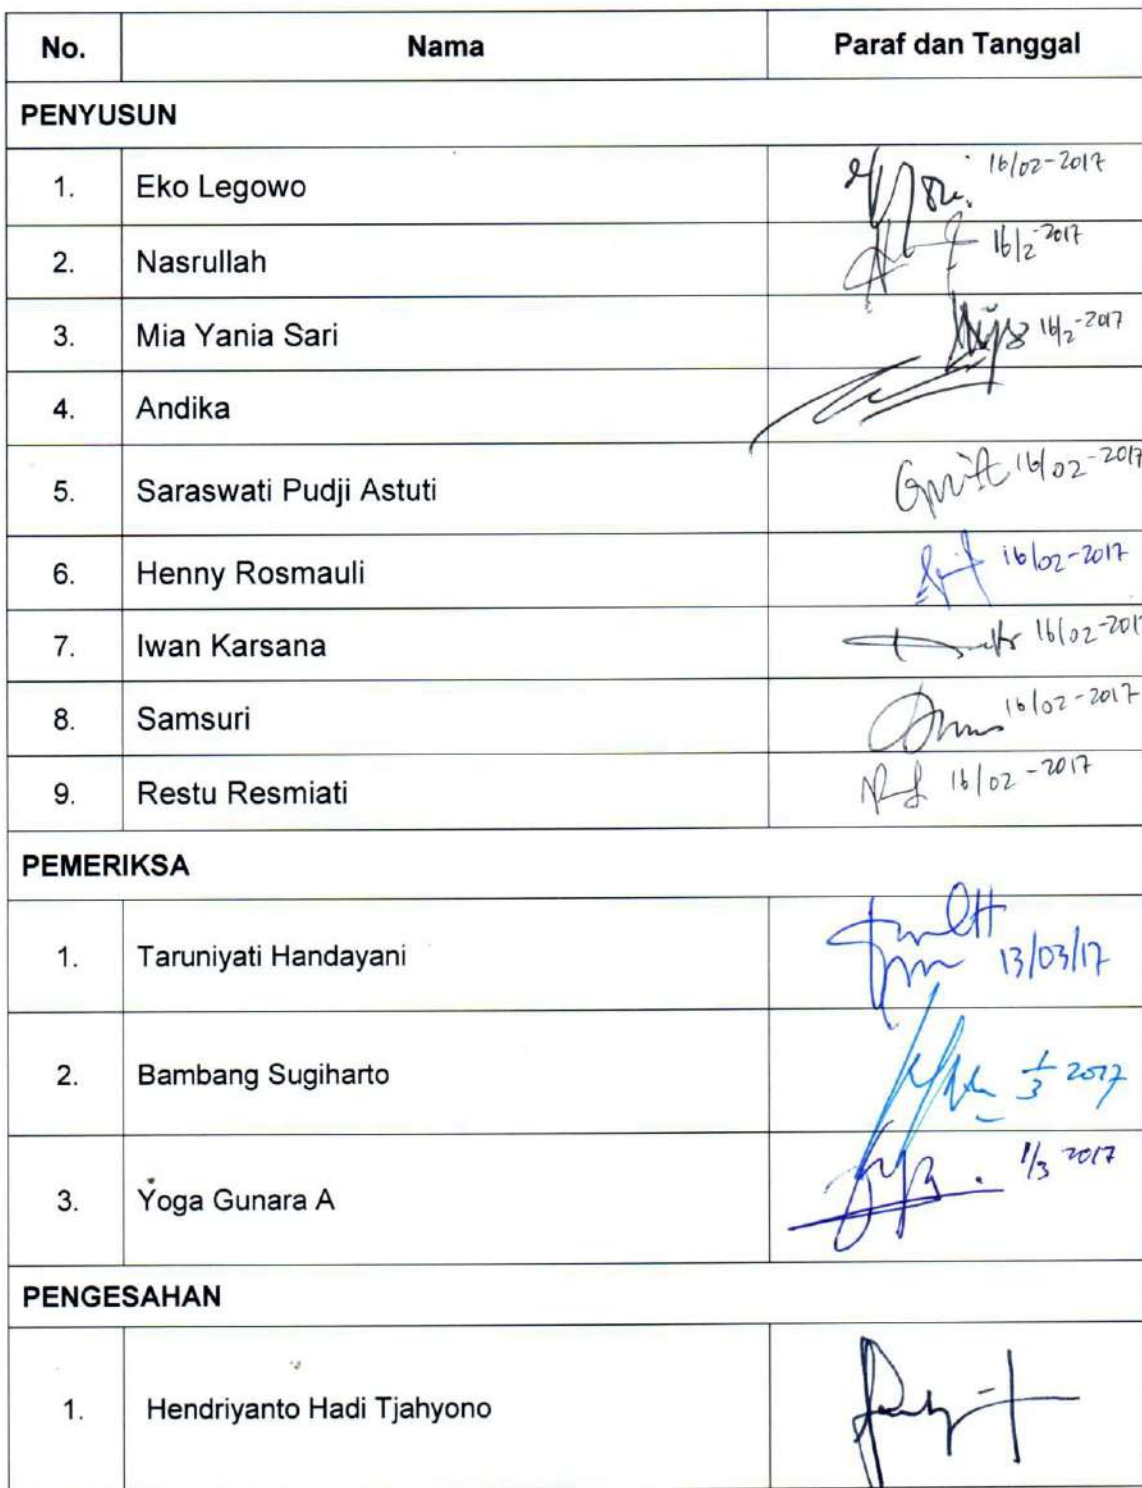 No. Nama Paraf dan Tanggal
PENYUSUN
1. Eko Legowo 16/02-2017
2. Nasrullah 16/2-2017
3. Mia Yania Sari 16/2-2017
4. Andika
5. Saraswati Pudji Astuti 16/02-2017
6. Henny Rosmauli 16/02-2017
7. Iwan Karsana 16/02-2017
8. Samsuri 16/02-2017
9. Restu Resmiati 16/02-2017
PEMERIKSA
1. Taruniyati Handayani 13/03/17
2. Bambang Sugiharto 1/3 2017
3. Yoga Gunara A 1/3 2017
PENGESAHAN
1. Hendriyanto Hadi Tjahyono